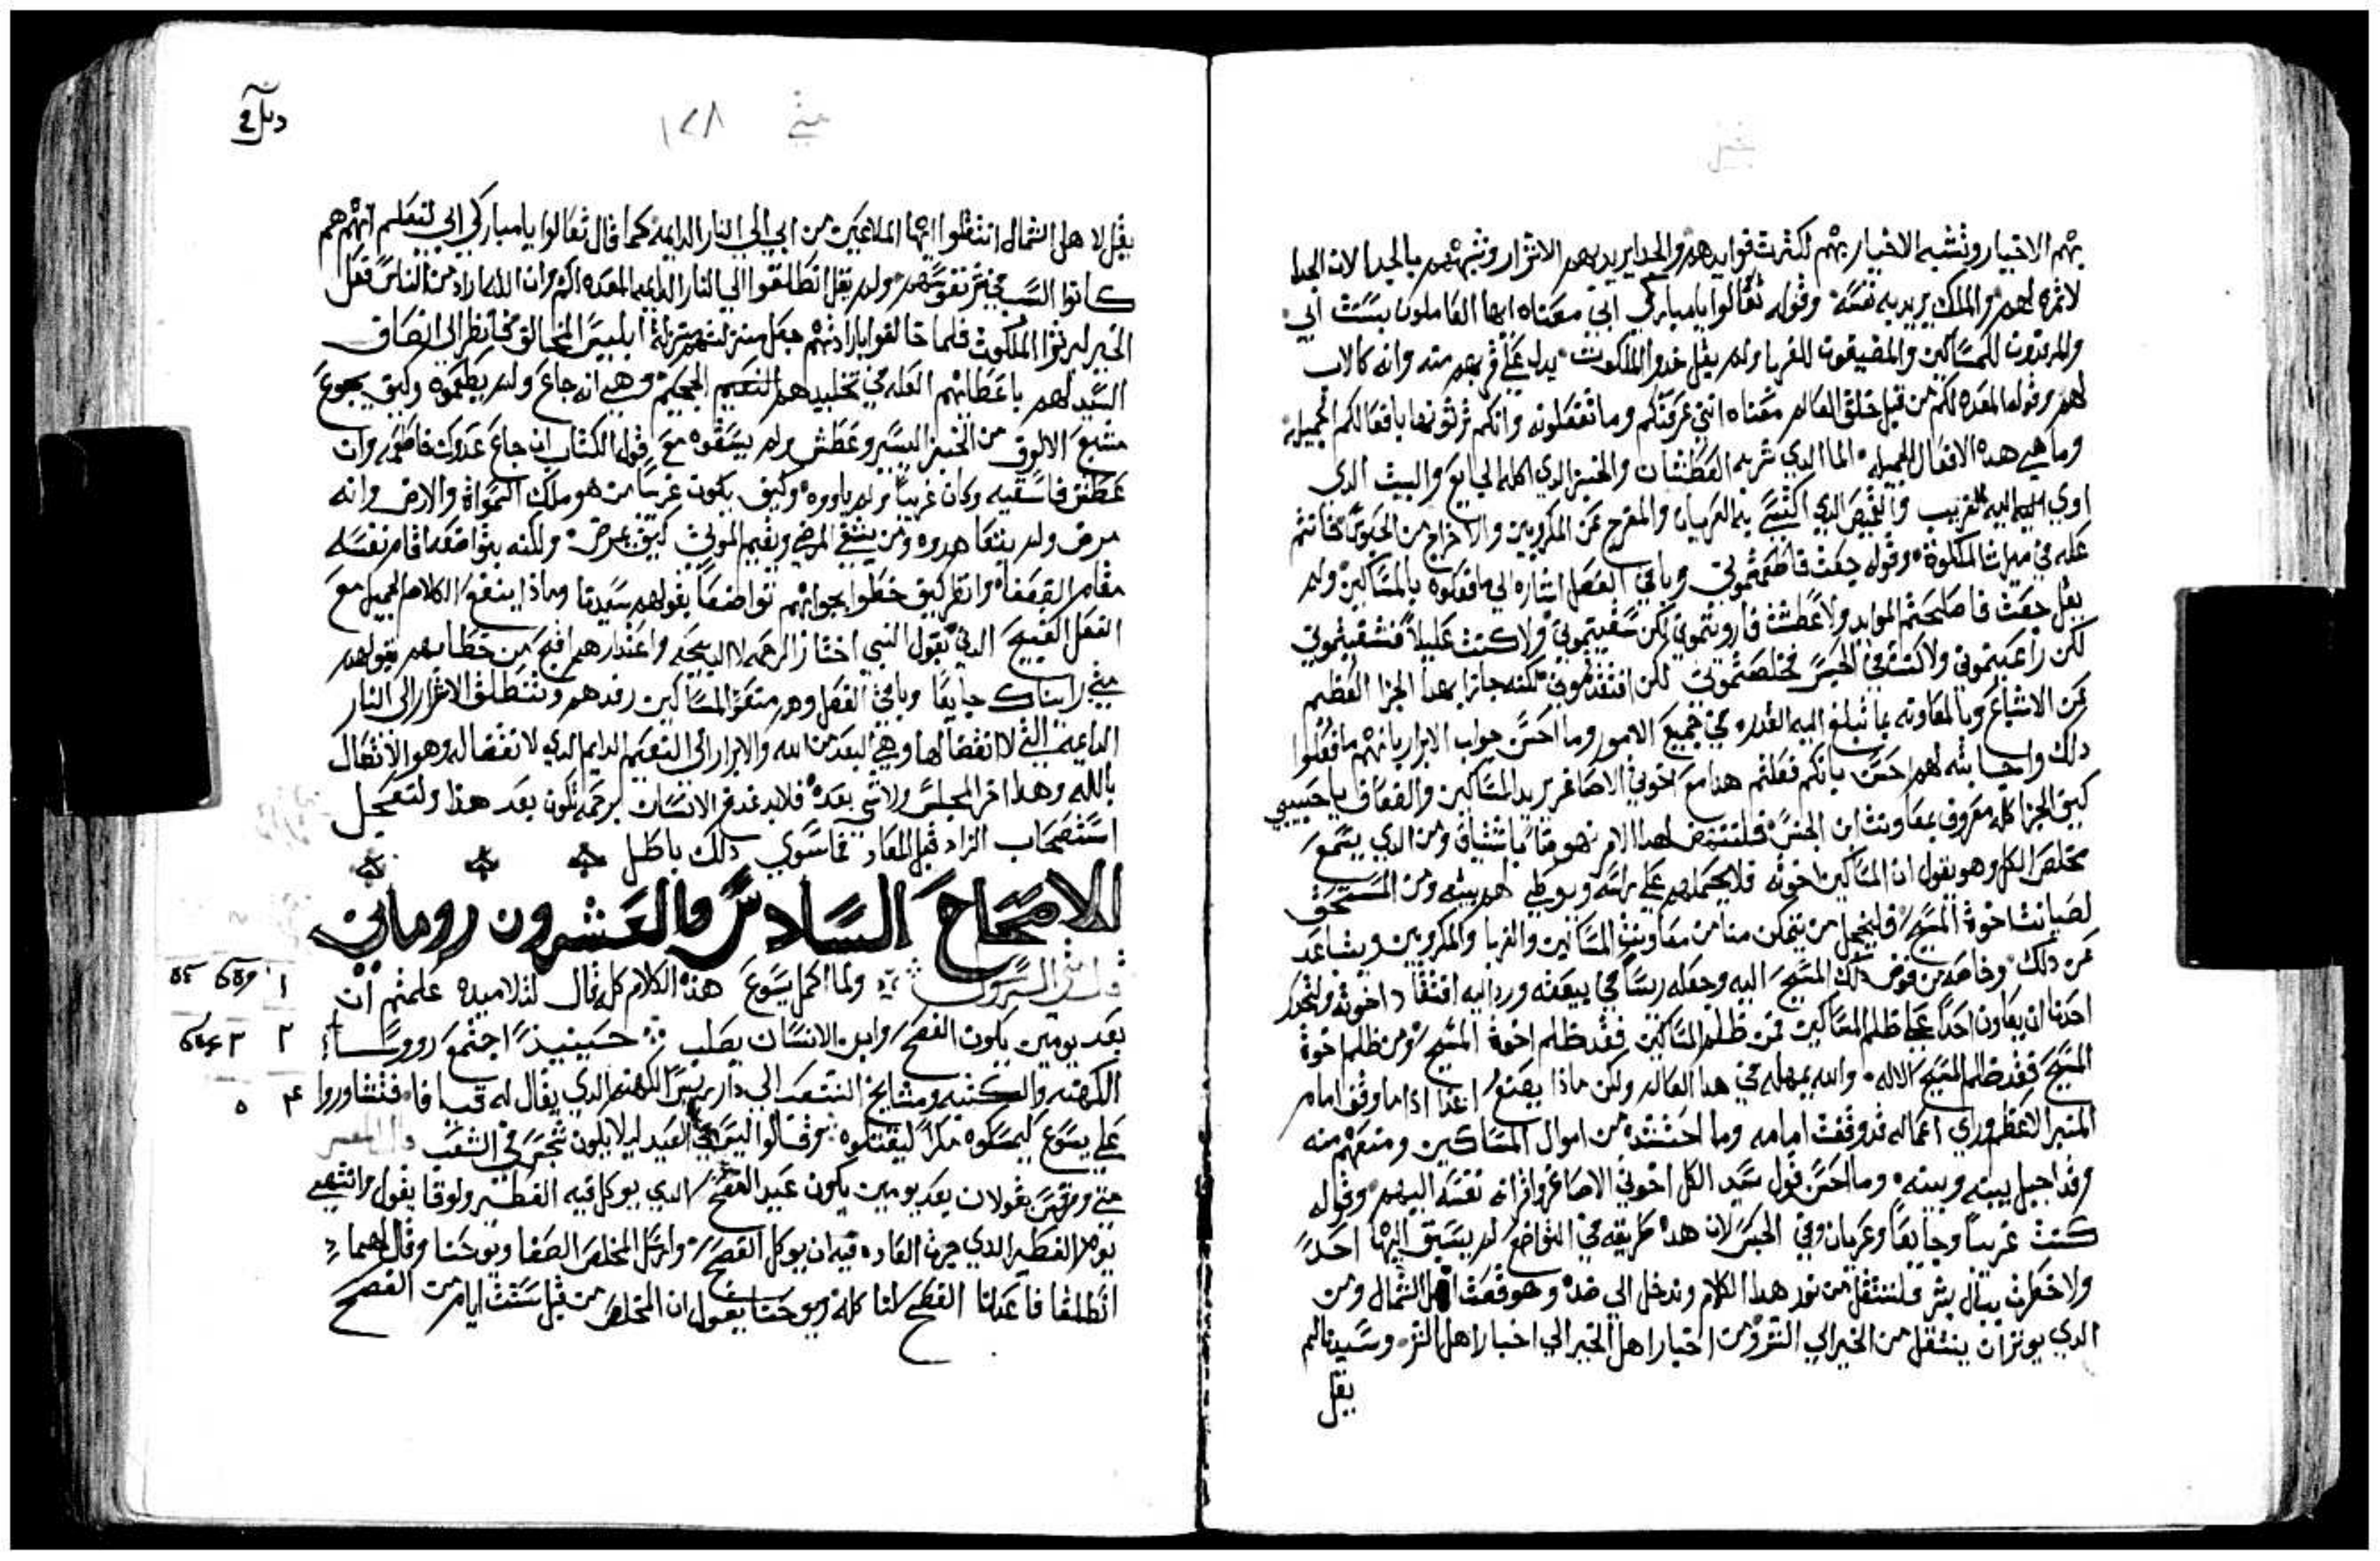 بهم الاخيار وتشبه الاخيار بهم لكثرت فوايدهم والجدا يريد بهم الاشرار وشبههم بالجدا لان الجدا
لا ثمره لهم والملك يريد به نفسه وقوله تعالوا يا مباركي ابي معناه ايها العاملون بسنت ابي
والمرفدون للمساكين والمضيفون للغربا ولم يقل خدوا الملكوت يدل علي قربهم منه وانه كالاب
لهم وقوله المعده لكم من قبل خلق العالم معناه انني عرفتكم وما تفعلونه وانكم ترثونها بافعالكم الجميله
وما هي هده الافعال الجميله الما الدي شربه العطشان والخبز الدي اكله الجايع والبيت الدي
اوي اليه الغريب والقميص الدي اكتسي به العريان والمفرج عن المكروبين والاخراج من الحبوس
عله في ميراث الملكوة وقوله جعت فاطعمتموني وباقي الفصل اشاره الي ما فعلوه بالمساكين ولم
يقل جعت فاصلحتم الموايد ولا عطشت فارويتموني لكن سقيتموني ولا كنت عليلاً فشفيتموني
لكن راعيتموني ولا كنت في الحبس فخلصتموني لكن افتقدتموني لكنه جازا بهدا الجزا العظيم
عن الاشباع وبالمعاونه بما تبلغ اليه القدره في جميع الامور وما احسن جواب الابرار بانهم ما فعلوا
دلك واجابته لهم احسن بانكم فعلتم هدا مع اخوتي الاصاغر يريد المساكين والضعاف يا حبيبي
كيف الجزا كله معروف بمعاونت ابن الجنس فلننهض لهدا الامر نهوضاً باشتياق ومن الدي يسمع
مخلص الكل وهو يقول ان المساكين اخوته فلا يحملهم علي راسه ويوطي لهم بيته ومن المستحق
لضيافت اخوة المسيح فليجمل من يتمكن منا من معاونت المساكين والغربا والمكروبين ويتباعد
عن دلك وخاصه من فوض دلك المسيح اليه وجعله ريساً في بيعته ورد اليه افتقاد اخوته وليحذر
احدنا ان يعاون احداً علي ظلم المساكين فمن ظلم المساكين فقد ظلم اخوة المسيح ومن ظلم اخوة
المسيح فقد ظلم المسيح الاله والله يمهله في هدا العالم ولكن ماذا يصنع غداً اذا ما وقف امام
المنبر الاعظم وراي اعماله قد وقفت امامه وما احتشده من اموال المساكين ومنعهم منه
وقد احيل بينه وبينه وما احسن قول سيد الكل اخوتي الاصاغر واقرانه نفسه اليهم وقوله
كنت غريباً وجايعاً وعريان وفي الحبس لان هده طريقه في التواضع لم يسبق اليها احداً
ولا خطرت ببال بشر فلننتقل من نور هدا الكلام وندخل الي ضده وهو قصة اهل الشمال ومن
الدي يوثر ان ينتقل من الخير الي الشر ومن اخبار اهل الخير الي اخبار اهل الشر وسيدنا لم
يقل
متي ١٢٨
يقل لاهل الشمال انتقلوا ايها الملاعين من ابي الي النار الدايمه كما قال تعالوا يا مباركي ابي لتعلم انهم هم
كانوا السبب في شر نفوسهم ولم يقل انطلقوا الي النار الدايمه المعده لكم وان الله اراد من الناس فعل
الخير ليرثوا الملكوت فلما خالفوا بارادتهم جعل منزلتهم منزلة ابليس المخالق فانظر الي انصاف
السيد لهم باعطائهم العله في تخليدهم الجحيم وهي انه جاع ولم يطعموه وكيف يجوع
مشبع الالوف من الخبز اليسير وعطش ولم يسقوه مع قول الكتاب ان جاع عدوك فاطعمه وان
عطش فاسقيه وكان غريباً ولم ياووه وكيف يكون غريباً من هو ملك السموات والارض وانه
مرض ولم يتعاهدوه ومن يشفي المرضي ويقيم الموتي كيف يمرض ولكنه بتواضعه اقام نفسه
مقام الضعفاء وانظر كيف خطوا بجوابهم تواضعاً بقولهم سيدنا وماذا ينفع الكلام الجميل مع
الفعل القبيح الدي يقول النبي اختار الرحمه لا الدبيحه واعتدارهم اقبح من خطابهم بقولهم
متي رايناك جايعاً وباقي الفصل وهم منعوا المساكين رفدهم وتنطلق الاشرار الي النار
الدايمه التي لا انقضا لها وهي البعد من الله والابرار الي النعيم الدايم الدي لا انقضا له وهو الاتصال
بالله وهدا اخر المجلس ولا شي بعده فلا يغدع الانسان لرحمه تكون بعد هذا ولتعجل
استصحاب الزاد قبل المعاد فما سوي دلك باطل
الاصحاح السادس والعشرون روماني
ولما اكمل يسوع هذه الكلام كله قال لتلاميده علمتم ان
بعد يومين يكون الفصح وابن الانسان يصلب حينيذ اجتمع رووسا
الكهنه والكتبه ومشايخ الشعب الي دار ريس الكهنه الدي يقال له قيافا فتشاوروا
علي يسوع ليمسكوه مكراً ليقتلوه وقالوا ليس في العيد ليلا يكون شجس في الشعب
متي ومرقس يقولان بعد يومين يكون عيد الفصح الدي يوكل فيه الفطير ولوقا يقول وانتهي
يوم الفطير الدي جرت العاده فيه ان يوكل الفصح وارسل المخلص الصفا ويوحنا وقال لهما
انطلقا فاعدا لنا الفصح لناكله ويوحنا يقول ان المخلص من قبل ستت ايام من الفصح